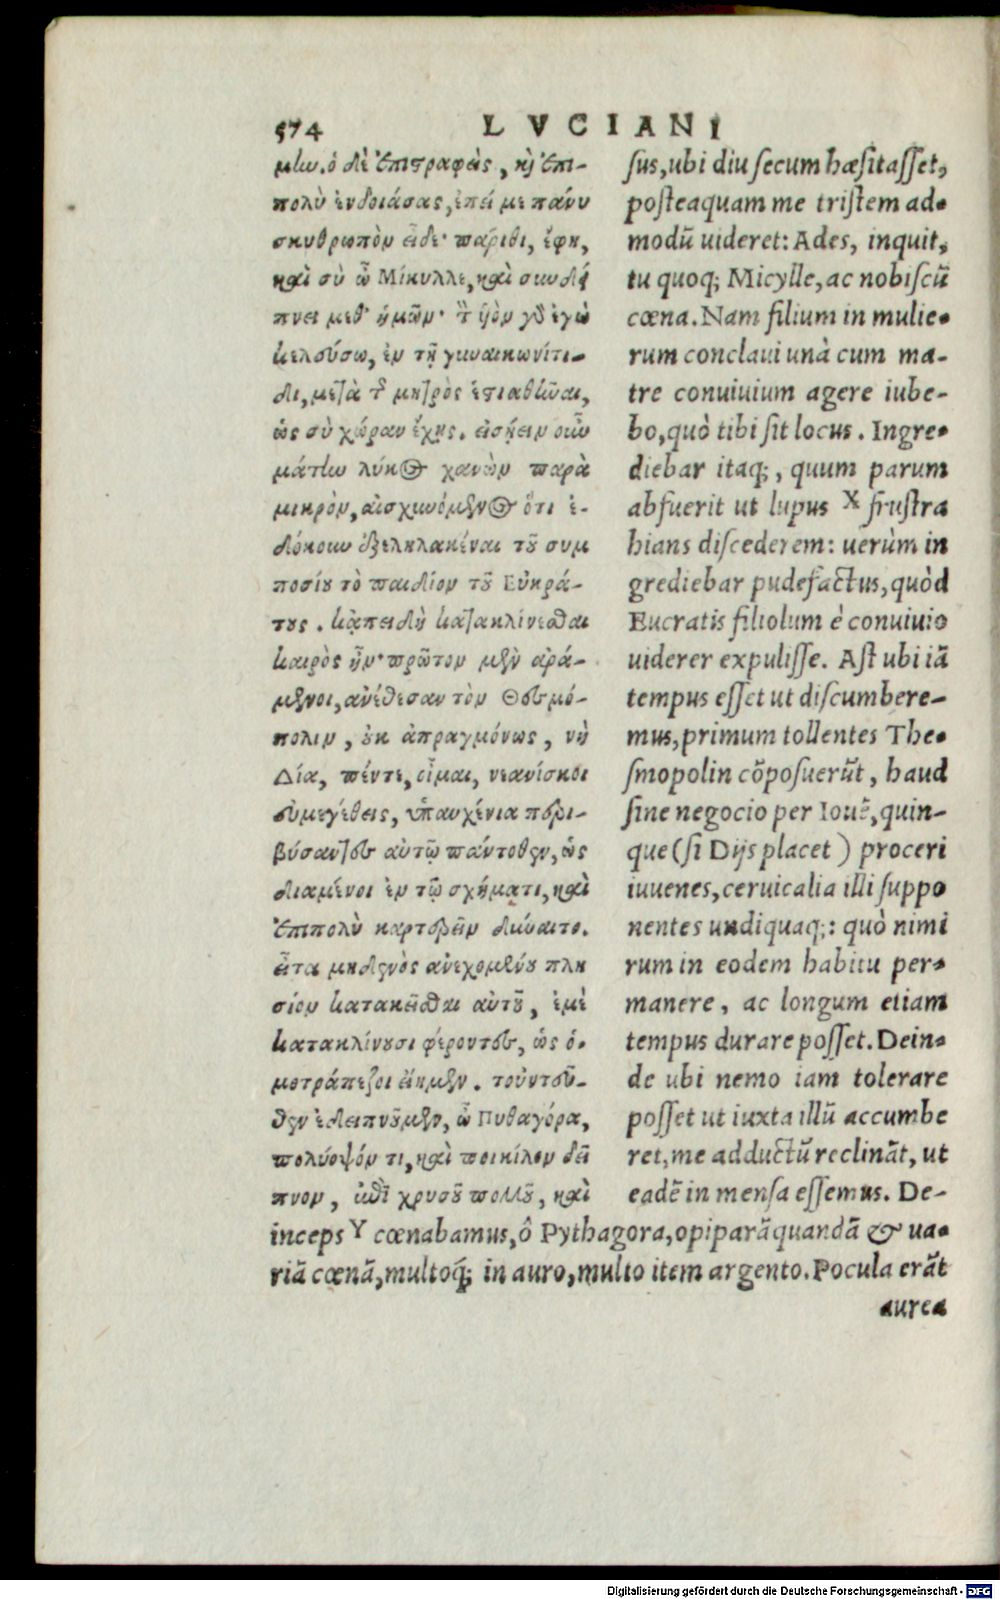 574 LVCIANI
μίω. ὁ δὲ ἐπιστραφεὶς, κỳ ἐπι-
πολὺ ἐνδοιάσας, ἐπεί με πάνυ
σκυθρωπὸν εἶδε· πάριθι, ἔφη,
καὶ σὺ ὦ Μίκυλλε, καὶ σιωδεί
πνει μεθ' ἡμῶν· τὸν ὑὸν γὸ ἐγὼ
κελεύσω, ἐν τῇ γυναικωνίτι-
δι, μετὰ τ̃ μητρὸς ἑστιαθῆναι,
ὡς σὺ χώραν ἔχῃς. εἰσῄειν οὖν
μάτίω λύκος χανὼν παρὰ
μικρὸν, αἰσχιωόμενος ὅτι ἐ-
δόκοιω ἐξεληλακέναι τοῦ συμ
ποσίου τὸ παιδίον τοῦ Εὐκρά-
τους. κἀπειδὴ κατακλίνεσθαι
καιρὸς ἦν· πρῶτον μὲν ἀρά-
μενοι, ἀνέθεσαν τὸν Θεσμό-
πολιν, οὐκ ἀπραγμόνως, νὴ
Δία, πέντε, οἶμαι, νεανίσκοι
εὐμεγέθεις, ὑπαυχένια περι-
βύσαντες αὐτῷ πάντοθεν, ὡς
διαμένοι ἐν τῷ σχήματι, καὶ
ἐπιπολὺ καρτερεῖν δύναιτο.
εἶτα μηδενὸς ἀνεχομένου πλη
σίον κατακεῖσθαι αὐτοῦ, ἐμὲ
κατακλίνουσι φέροντες, ὡς ὁ-
μοτράπεζοι εἴημεν. τοὐντεῦ-
θεν ἐδειπνοῦμεν, ὦ Πυθαγόρα,
πολύοψόν τι, καὶ ποικίλον δεῖ
πνον, ἐπὶ χρυσοῦ πολλοῦ, καὶ
sus, ubi diu secum hæsitasset,
posteaquam me tristem ad-
modū uideret: Ades, inquit,
tu quoq; Micylle, ac nobiscū
cœna. Nam filium in mulie-
rum conclaui unà cum ma-
tre conuiuium agere iube-
bo, quò tibi sit locus. Ingre-
diebar itaq;, quum parum
abfuerit ut lupus X frustra
hians discederem: uerùm in
grediebar pudefactus, quòd
Eucratis filiolum è conuiuio
uiderer expulisse. Ast ubi iā
tempus esset ut discumbere-
mus, primum tollentes The-
smopolin cōposuerūt, haud
sine negocio per Iouē, quin-
que (si Dijs placet) proceri
iuuenes, ceruicalia illi suppo
nentes undiquaq;: quò nimi
rum in eodem habitu per-
manere, ac longum etiam
tempus durare posset. Dein-
de ubi nemo iam tolerare
posset ut iuxta illū accumbe
ret, me adductū reclināt, ut
eadē in mensa essemus. De-
inceps Y cœnabamus, ô Pythagora, opiparā quandā & ua-
riā cœnā, multoq́; in auro, multo item argento. Pocula erāt
aurea
Digitalisierung gefördert durch die Deutsche Forschungsgemeinschaft - DFG